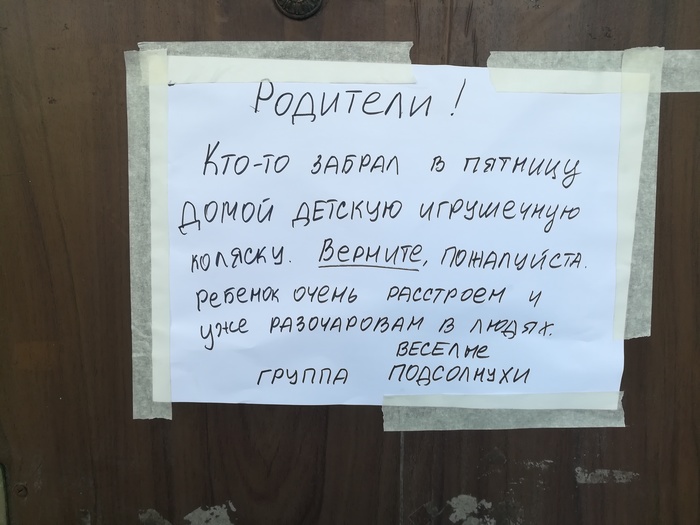 Родители!
Кто-то забрал в пятницу
домой детскую игрушечную
коляску. Верните, пожалуйста.
Ребенок очень расстроен и
уже разочарован в людях.
Веселые
группа подсолнухи